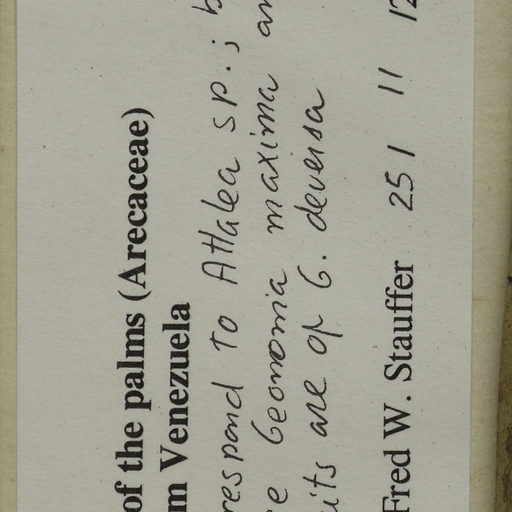 of the palms (Arecaceae)
m Venezuela
respond to Attalea sp.; b
e Geonoma maxima an
uits are of G. deversa
Fred W. Stauffer 25 1 11 12